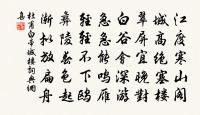 江度寒山閣
城高絕塞樓
翠屏宜晚對
白谷會深游
急急能鳴雁
輕輕不下鷗
彝陵春色起
漸拟放扁舟
杜甫白帝城樓詞典網
集